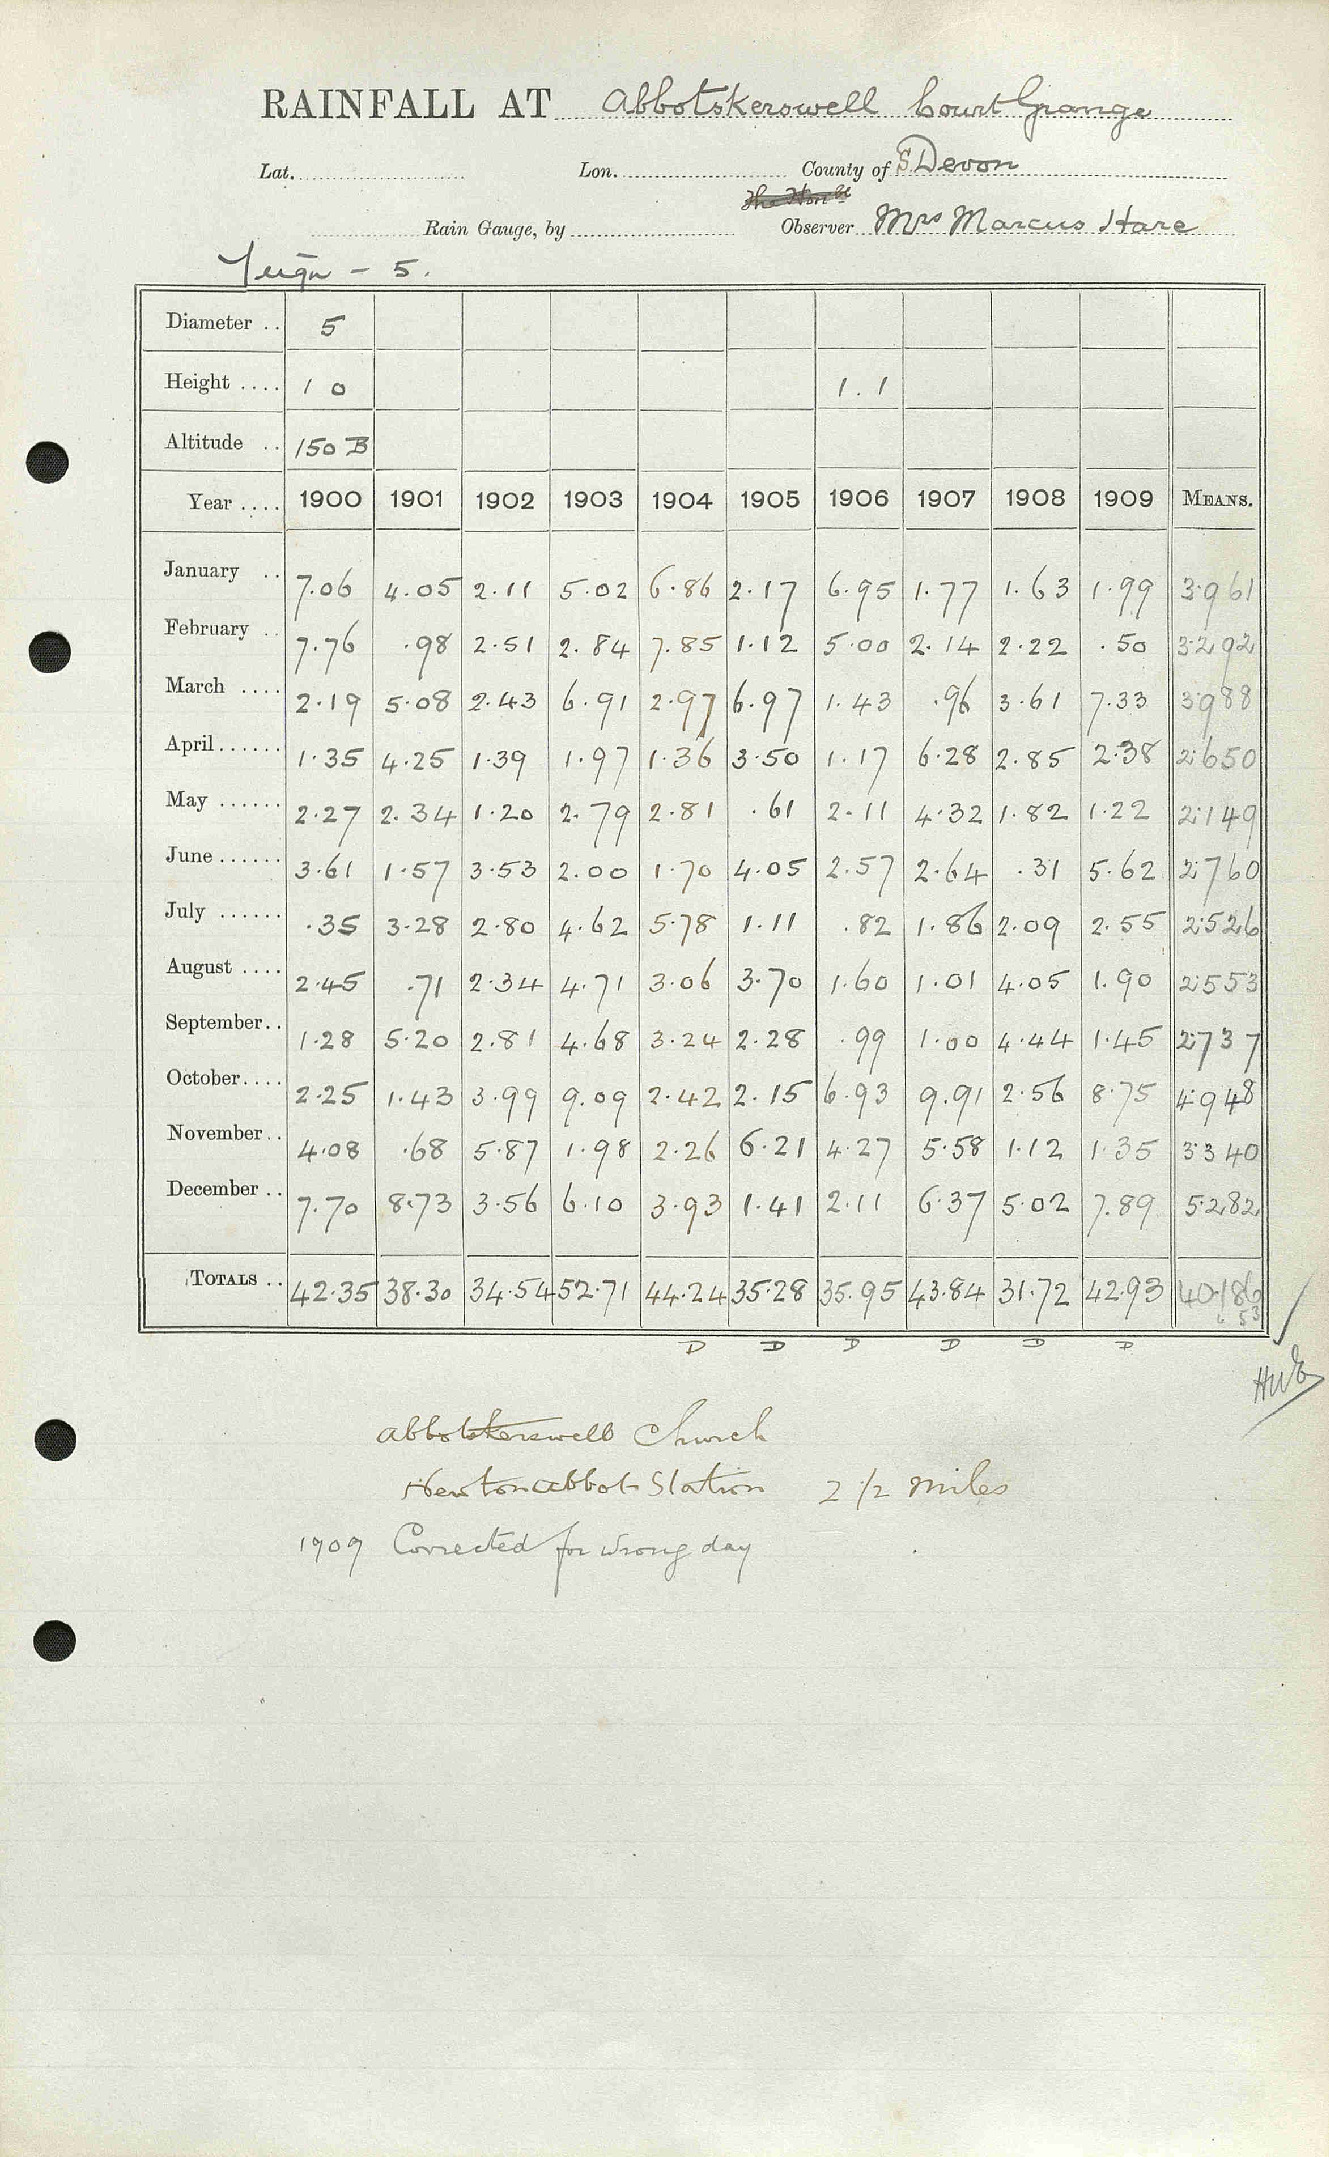 RAINFALL AT Abbotskerswell Court Grange
Lat. Lon. County of S. Devon
The Honble
Rain Gauge, by Observer Mrs Marcus Hare
Teign - 5.
Diameter .. 5
Height .... 1 0 1.1
Altitude .. 150 B
Year .... 1900 1901 1902 1903 1904 1905 1906 1907 1908 1909 MEANS.
January .. 7.06 4.05 2.11 5.02 6.86 2.17 6.95 1.77 1.63 1.99 3.961
February .. 7.76 .98 2.51 2.84 7.85 1.12 5.00 2.14 2.22 .50 3.292
March .... 2.19 5.08 2.43 6.91 2.97 6.97 1.43 .96 3.61 7.33 3.988
April...... 1.35 4.25 1.39 1.97 1.36 3.50 1.17 6.28 2.85 2.38 2.650
May ...... 2.27 2.34 1.20 2.79 2.81 .61 2.11 4.32 1.82 1.22 2.149
June ...... 3.61 1.57 3.53 2.00 1.70 4.05 2.57 2.64 .31 5.62 2.760
July ...... .35 3.28 2.80 4.62 5.78 1.11 .82 1.86 2.09 2.55 2.526
August .... 2.45 .71 2.34 4.71 3.06 3.70 1.60 1.01 4.05 1.90 2.553
September.. 1.28 5.20 2.81 4.68 3.24 2.28 .99 1.00 4.44 1.45 2.737
October.... 2.25 1.43 3.99 9.09 2.42 2.15 6.93 9.91 2.56 8.75 4.948
November.. 4.08 .68 5.87 1.98 2.26 6.21 4.27 5.58 1.12 1.35 3.340
December .. 7.70 8.73 3.56 6.10 3.93 1.41 2.11 6.37 5.02 7.89 5.282
TOTALS .. 42.35 38.30 34.54 52.71 44.24 35.28 35.95 43.84 31.72 42.93 40.186
D D D D D D
Abbotskerswell Church
Newton Abbot Station 2 1/2 miles
1909 Corrected for wrong day